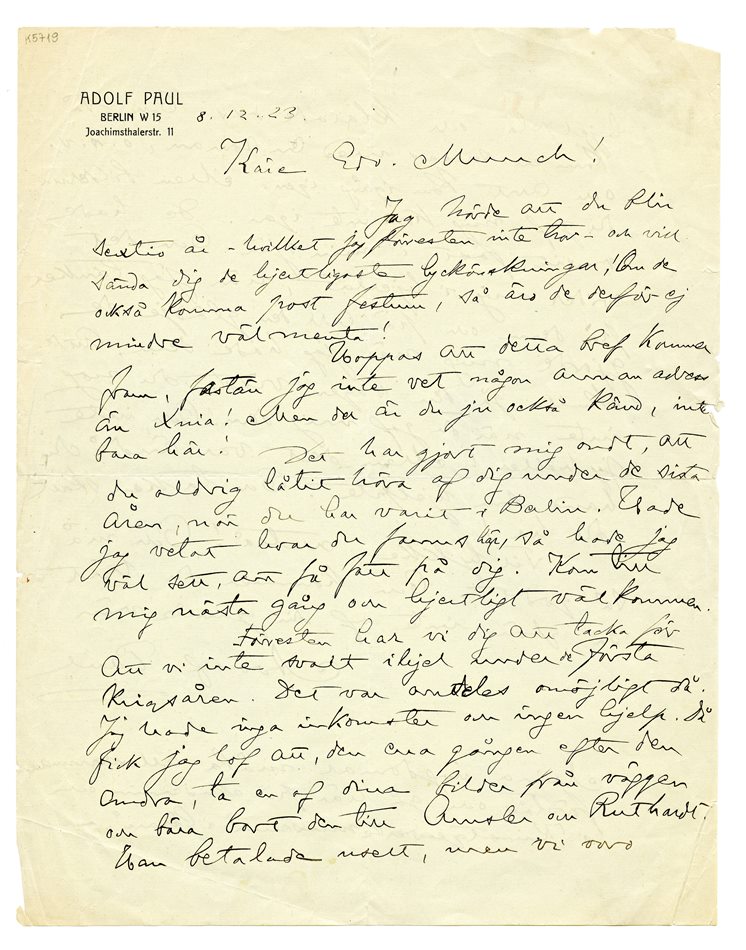 K5719
ADOLF PAUL
BERLIN W 15
Joachimsthalerstr. 11
8.12.23.
Käre Edv. Munch!
Jag hörde att du blir
sextio år - hvilket jag förresten inte tror - och vill
sända dig de hjertligaste lyckönskningar! Om de
också komma post festum, så äro de derför ej
mindre välmenta!
Hoppas att detta bref kommer
fram, fastän jag inte vet någon annan adress
än Xnia! Men der är du ju också känd, inte
bara här! Det har gjort mig ondt, att
du aldrig låtit höra af dig under de sista
åren, när du har varit i Berlin. Hade
jag vetat hvar du fanns här, så hade jag
väl sett, att få fatt på dig. Kom till
mig nästa gång och hjertligt välkommen.
Förresten har vi dig att tacka för
att vi inte svalt ihjel under de första
krigsåren. Det var omöjligt då.
Jag hade inga inkomster och ingen hjelp. Då
fick jag lof att, den ena gången efter den
andra, ta en af dina bilder från väggen
och bära bort den till Amsler och Ruthardt.
Han betalade uselt, men vi voro